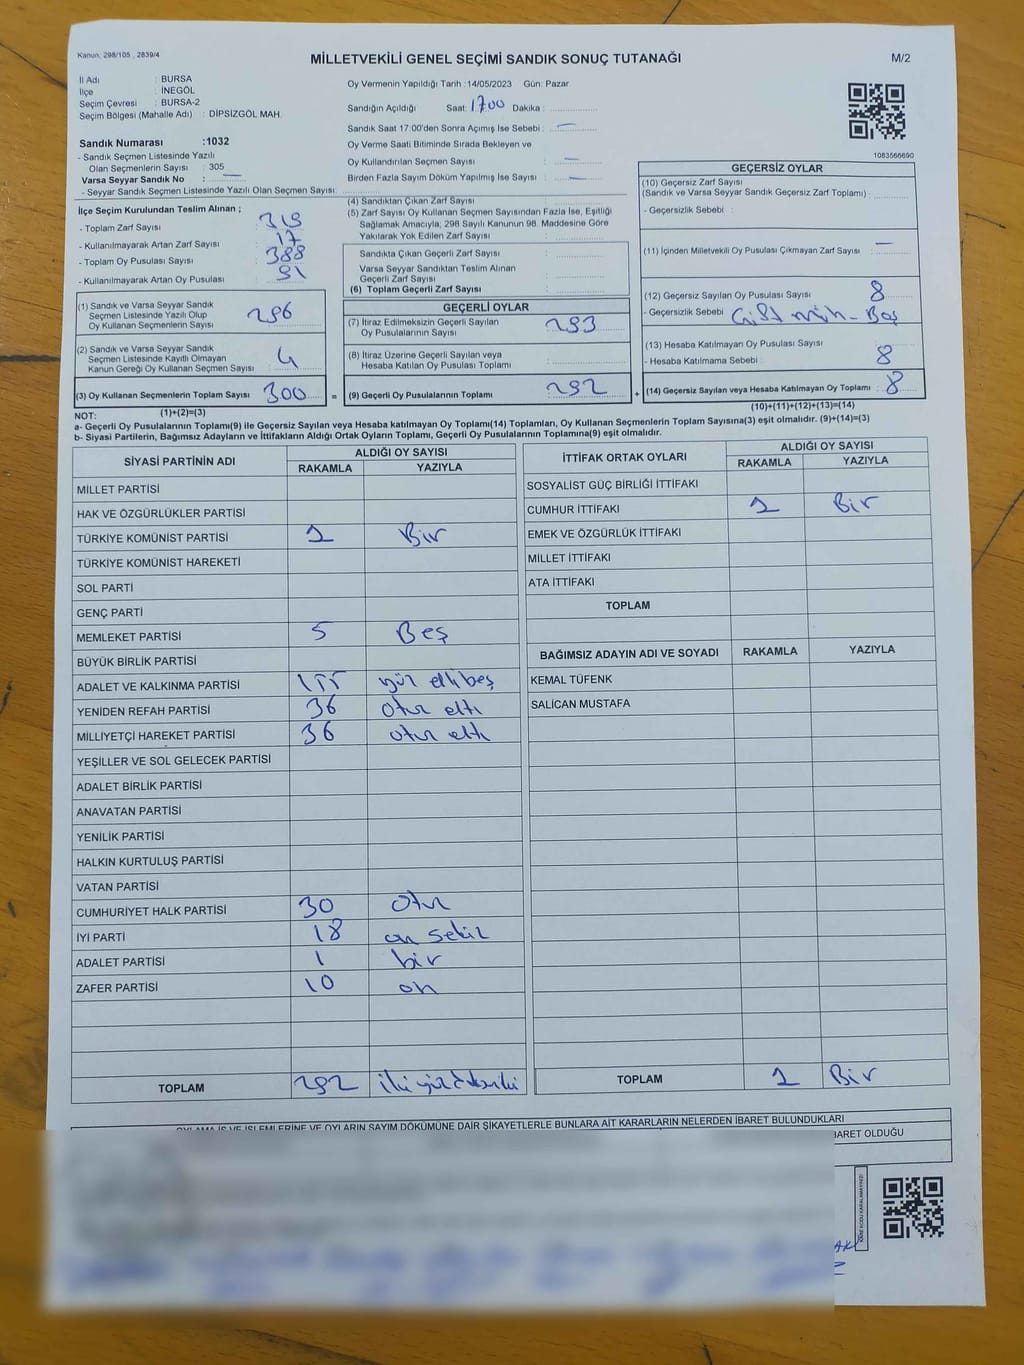 Kanun, 298/105 , 2839/4
MİLLETVEKİLİ GENEL SEÇİMİ SANDIK SONUÇ TUTANAĞI
M/2
İl Adı : BURSA
İlçe : İNEGÖL
Seçim Çevresi : BURSA-2
Seçim Bölgesi (Mahalle Adı) : DİPSİZGÖL MAH.
Sandık Numarası :1032
- Sandık Seçmen Listesinde Yazılı
Olan Seçmenlerin Sayısı : 305
Varsa Seyyar Sandık No : —
- Seyyar Sandık Seçmen Listesinde Yazılı Olan Seçmen Sayısı:
Oy Vermenin Yapıldığı Tarih :14/05/2023 Gün: Pazar
Sandığın Açıldığı Saat: 1700 Dakika :
Sandık Saat 17:00'den Sonra Açımış İse Sebebi : —
Oy Verme Saati Bitiminde Sırada Bekleyen ve
Oy Kullandırılan Seçmen Sayısı : —
Birden Fazla Sayım Döküm Yapılmış İse Sayısı : —
1083566690
İlçe Seçim Kurulundan Teslim Alınan ;
- Toplam Zarf Sayısı : 319
- Kullanılmayarak Artan Zarf Sayısı : 17
- Toplam Oy Pusulası Sayısı : 388
- Kullanılmayarak Artan Oy Pusulası : 91
(1) Sandık ve Varsa Seyyar Sandık
Seçmen Listesinde Yazılı Olup
Oy Kullanan Seçmenlerin Sayısı : 296
(2) Sandık ve Varsa Seyyar Sandık
Seçmen Listesinde Kayıtlı Olmayan
Kanun Gereği Oy Kullanan Seçmen Sayısı : 4
(3) Oy Kullanan Seçmenlerin Toplam Sayısı : 300
(1)+(2)=(3)
(4) Sandıktan Çıkan Zarf Sayısı :
(5) Zarf Sayısı Oy Kullanan Seçmen Sayısından Fazla İse, Eşitliği
Sağlamak Amacıyla; 298 Sayılı Kanunun 98. Maddesine Göre
Yakılarak Yok Edilen Zarf Sayısı :
Sandıkta Çıkan Geçerli Zarf Sayısı :
Varsa Seyyar Sandıktan Teslim Alınan
Geçerli Zarf Sayısı :
(6) Toplam Geçerli Zarf Sayısı :
GEÇERLİ OYLAR
(7) İtiraz Edilmeksizin Geçerli Sayılan
Oy Pusulalarının Sayısı : 293
(8) İtiraz Üzerine Geçerli Sayılan veya
Hesaba Katılan Oy Pusulası Toplamı :
= (9) Geçerli Oy Pusulalarının Toplamı : 292
GEÇERSİZ OYLAR
(10) Geçersiz Zarf Sayısı
(Sandık ve Varsa Seyyar Sandık Geçersiz Zarf Toplamı) :
- Geçersizlik Sebebi :
(11) İçinden Milletvekili Oy Pusulası Çıkmayan Zarf Sayısı : —
(12) Geçersiz Sayılan Oy Pusulası Sayısı : 8
- Geçersizlik Sebebi : Çift müh - Boş
(13) Hesaba Katılmayan Oy Pusulası Sayısı :
- Hesaba Katılmama Sebebi : 8
+ (14) Geçersiz Sayılan veya Hesaba Katılmayan Oy Toplamı : 8
(10)+(11)+(12)+(13)=(14)
NOT:
a- Geçerli Oy Pusulalarının Toplamı(9) ile Geçersiz Sayılan veya Hesaba katılmayan Oy Toplamı(14) Toplamları, Oy Kullanan Seçmenlerin Toplam Sayısına(3) eşit olmalıdır. (9)+(14)=(3)
b- Siyasi Partilerin, Bağımsız Adayların ve İttifakların Aldığı Ortak Oyların Toplamı, Geçerli Oy Pusulalarının Toplamına(9) eşit olmalıdır.
SİYASİ PARTİNİN ADI
ALDIĞI OY SAYISI
RAKAMLA YAZIYLA
MİLLET PARTİSİ
HAK VE ÖZGÜRLÜKLER PARTİSİ
TÜRKİYE KOMÜNİST PARTİSİ 1 Bir
TÜRKİYE KOMÜNİST HAREKETİ
SOL PARTİ
GENÇ PARTİ
MEMLEKET PARTİSİ 5 Beş
BÜYÜK BİRLİK PARTİSİ
ADALET VE KALKINMA PARTİSİ 155 yüz elli beş
YENİDEN REFAH PARTİSİ 36 otuz altı
MİLLİYETÇİ HAREKET PARTİSİ 36 otuz altı
YEŞİLLER VE SOL GELECEK PARTİSİ
ADALET BİRLİK PARTİSİ
ANAVATAN PARTİSİ
YENİLİK PARTİSİ
HALKIN KURTULUŞ PARTİSİ
VATAN PARTİSİ
CUMHURİYET HALK PARTİSİ 30 otuz
İYİ PARTİ 18 on sekiz
ADALET PARTİSİ 1 bir
ZAFER PARTİSİ 10 on
TOPLAM 292 iki yüz doksan iki
İTTİFAK ORTAK OYLARI
ALDIĞI OY SAYISI
RAKAMLA YAZIYLA
SOSYALİST GÜÇ BİRLİĞİ İTTİFAKI
CUMHUR İTTİFAKI 1 Bir
EMEK VE ÖZGÜRLÜK İTTİFAKI
MİLLET İTTİFAKI
ATA İTTİFAKI
TOPLAM
BAĞIMSIZ ADAYIN ADI VE SOYADI RAKAMLA YAZIYLA
KEMAL TÜFENK
SALİCAN MUSTAFA
TOPLAM 1 Bir
OYLAMA İŞ VE İŞLEMLERİNE VE OYLARIN SAYIM DÖKÜMÜNE DAİR ŞİKAYETLERLE BUNLARA AİT KARARLARIN NELERDEN İBARET BULUNDUKLARI
İBARET OLDUĞU
KARE KODU KARALAMAYINIZ!